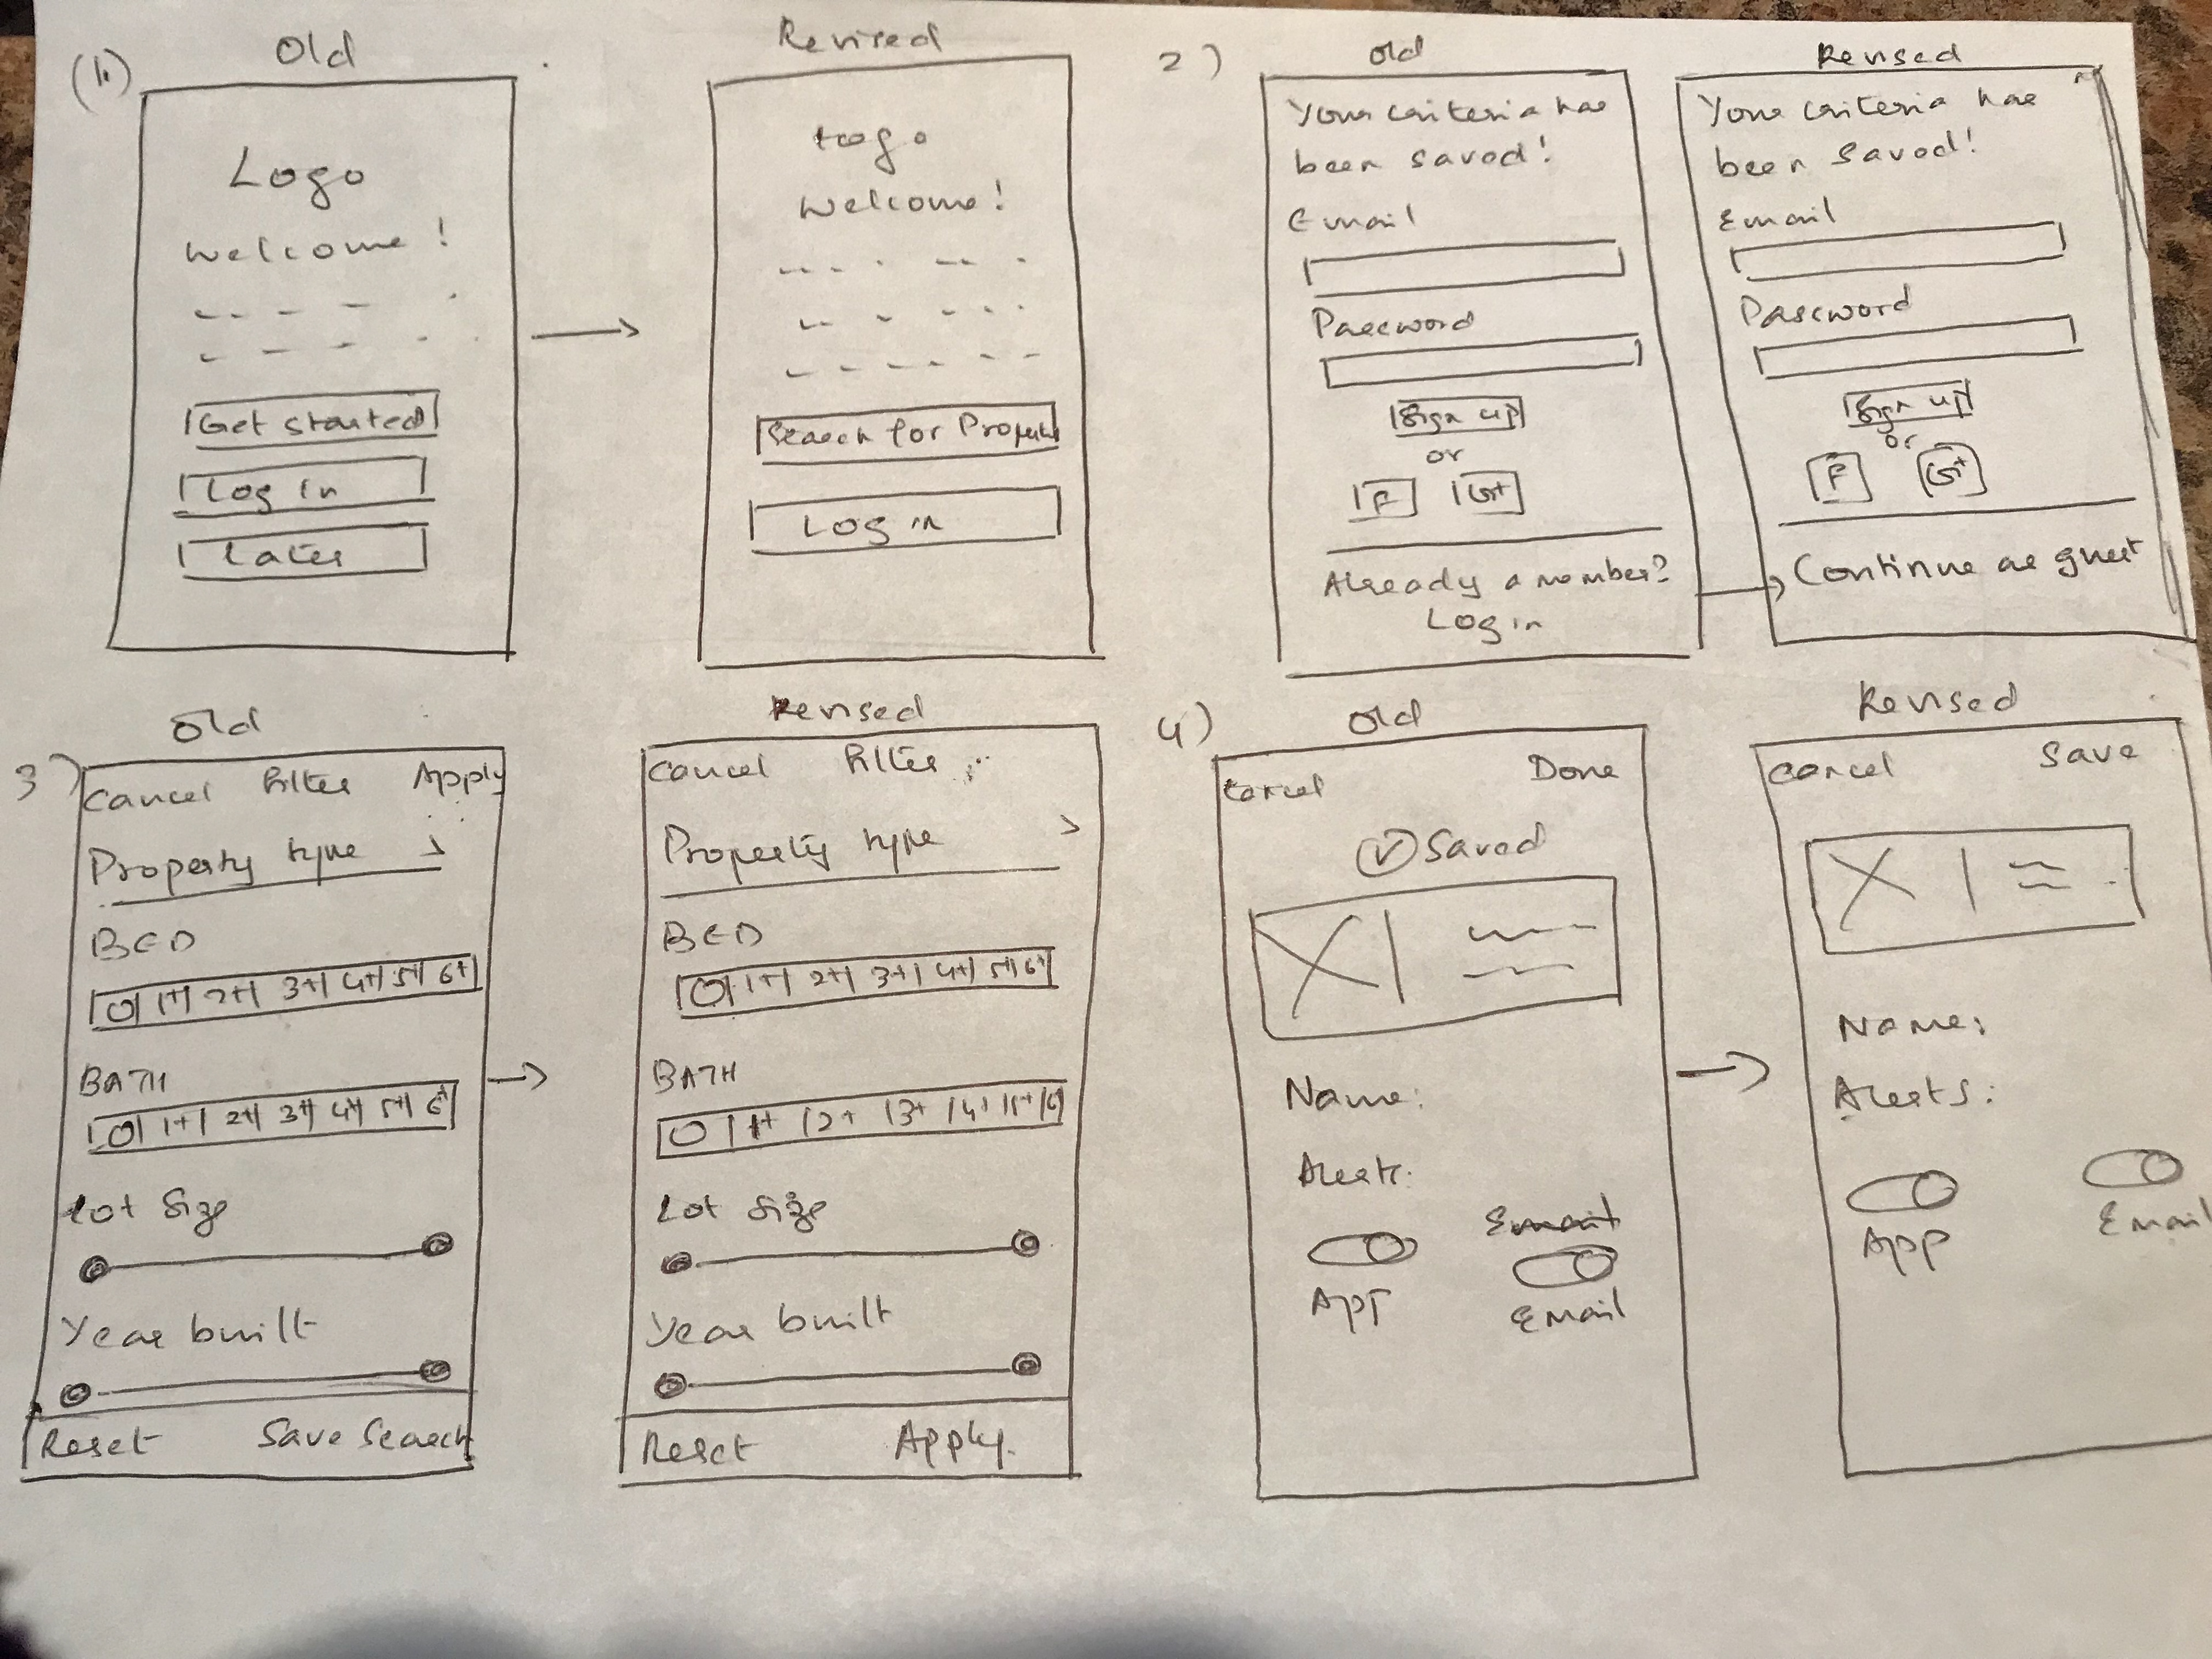 (1.)
Old
Logo
Welcome!
Get started
Log in
Later
Revised
Logo
Welcome!
Search for Propert
Log in
2)
Old
Your criteria has
been saved!
Email
Password
Sign up
or
F G+
Already a member?
Log in
Revised
Your criteria has
been saved!
Email
Password
Sign up
or
F G+
Continue as guest
3)
Old
Cancel Filter Apply
Property type >
BED
0 1+ 2+ 3+ 4+ 5+ 6+
BATH
0 1+ 2+ 3+ 4+ 5+ 6+
Lot Size
Year built
Reset Save Search
Revised
Cancel Filter
Property type >
BED
0 1+ 2+ 3+ 4+ 5+ 6+
BATH
0 1+ 2+ 3+ 4+ 5+ 6
Lot Size
Year built
Reset Apply
4)
Old
Cancel Done
Saved
Name:
Alerts:
Email
App Email
Revised
Cancel Save
Name:
Alerts:
App Email